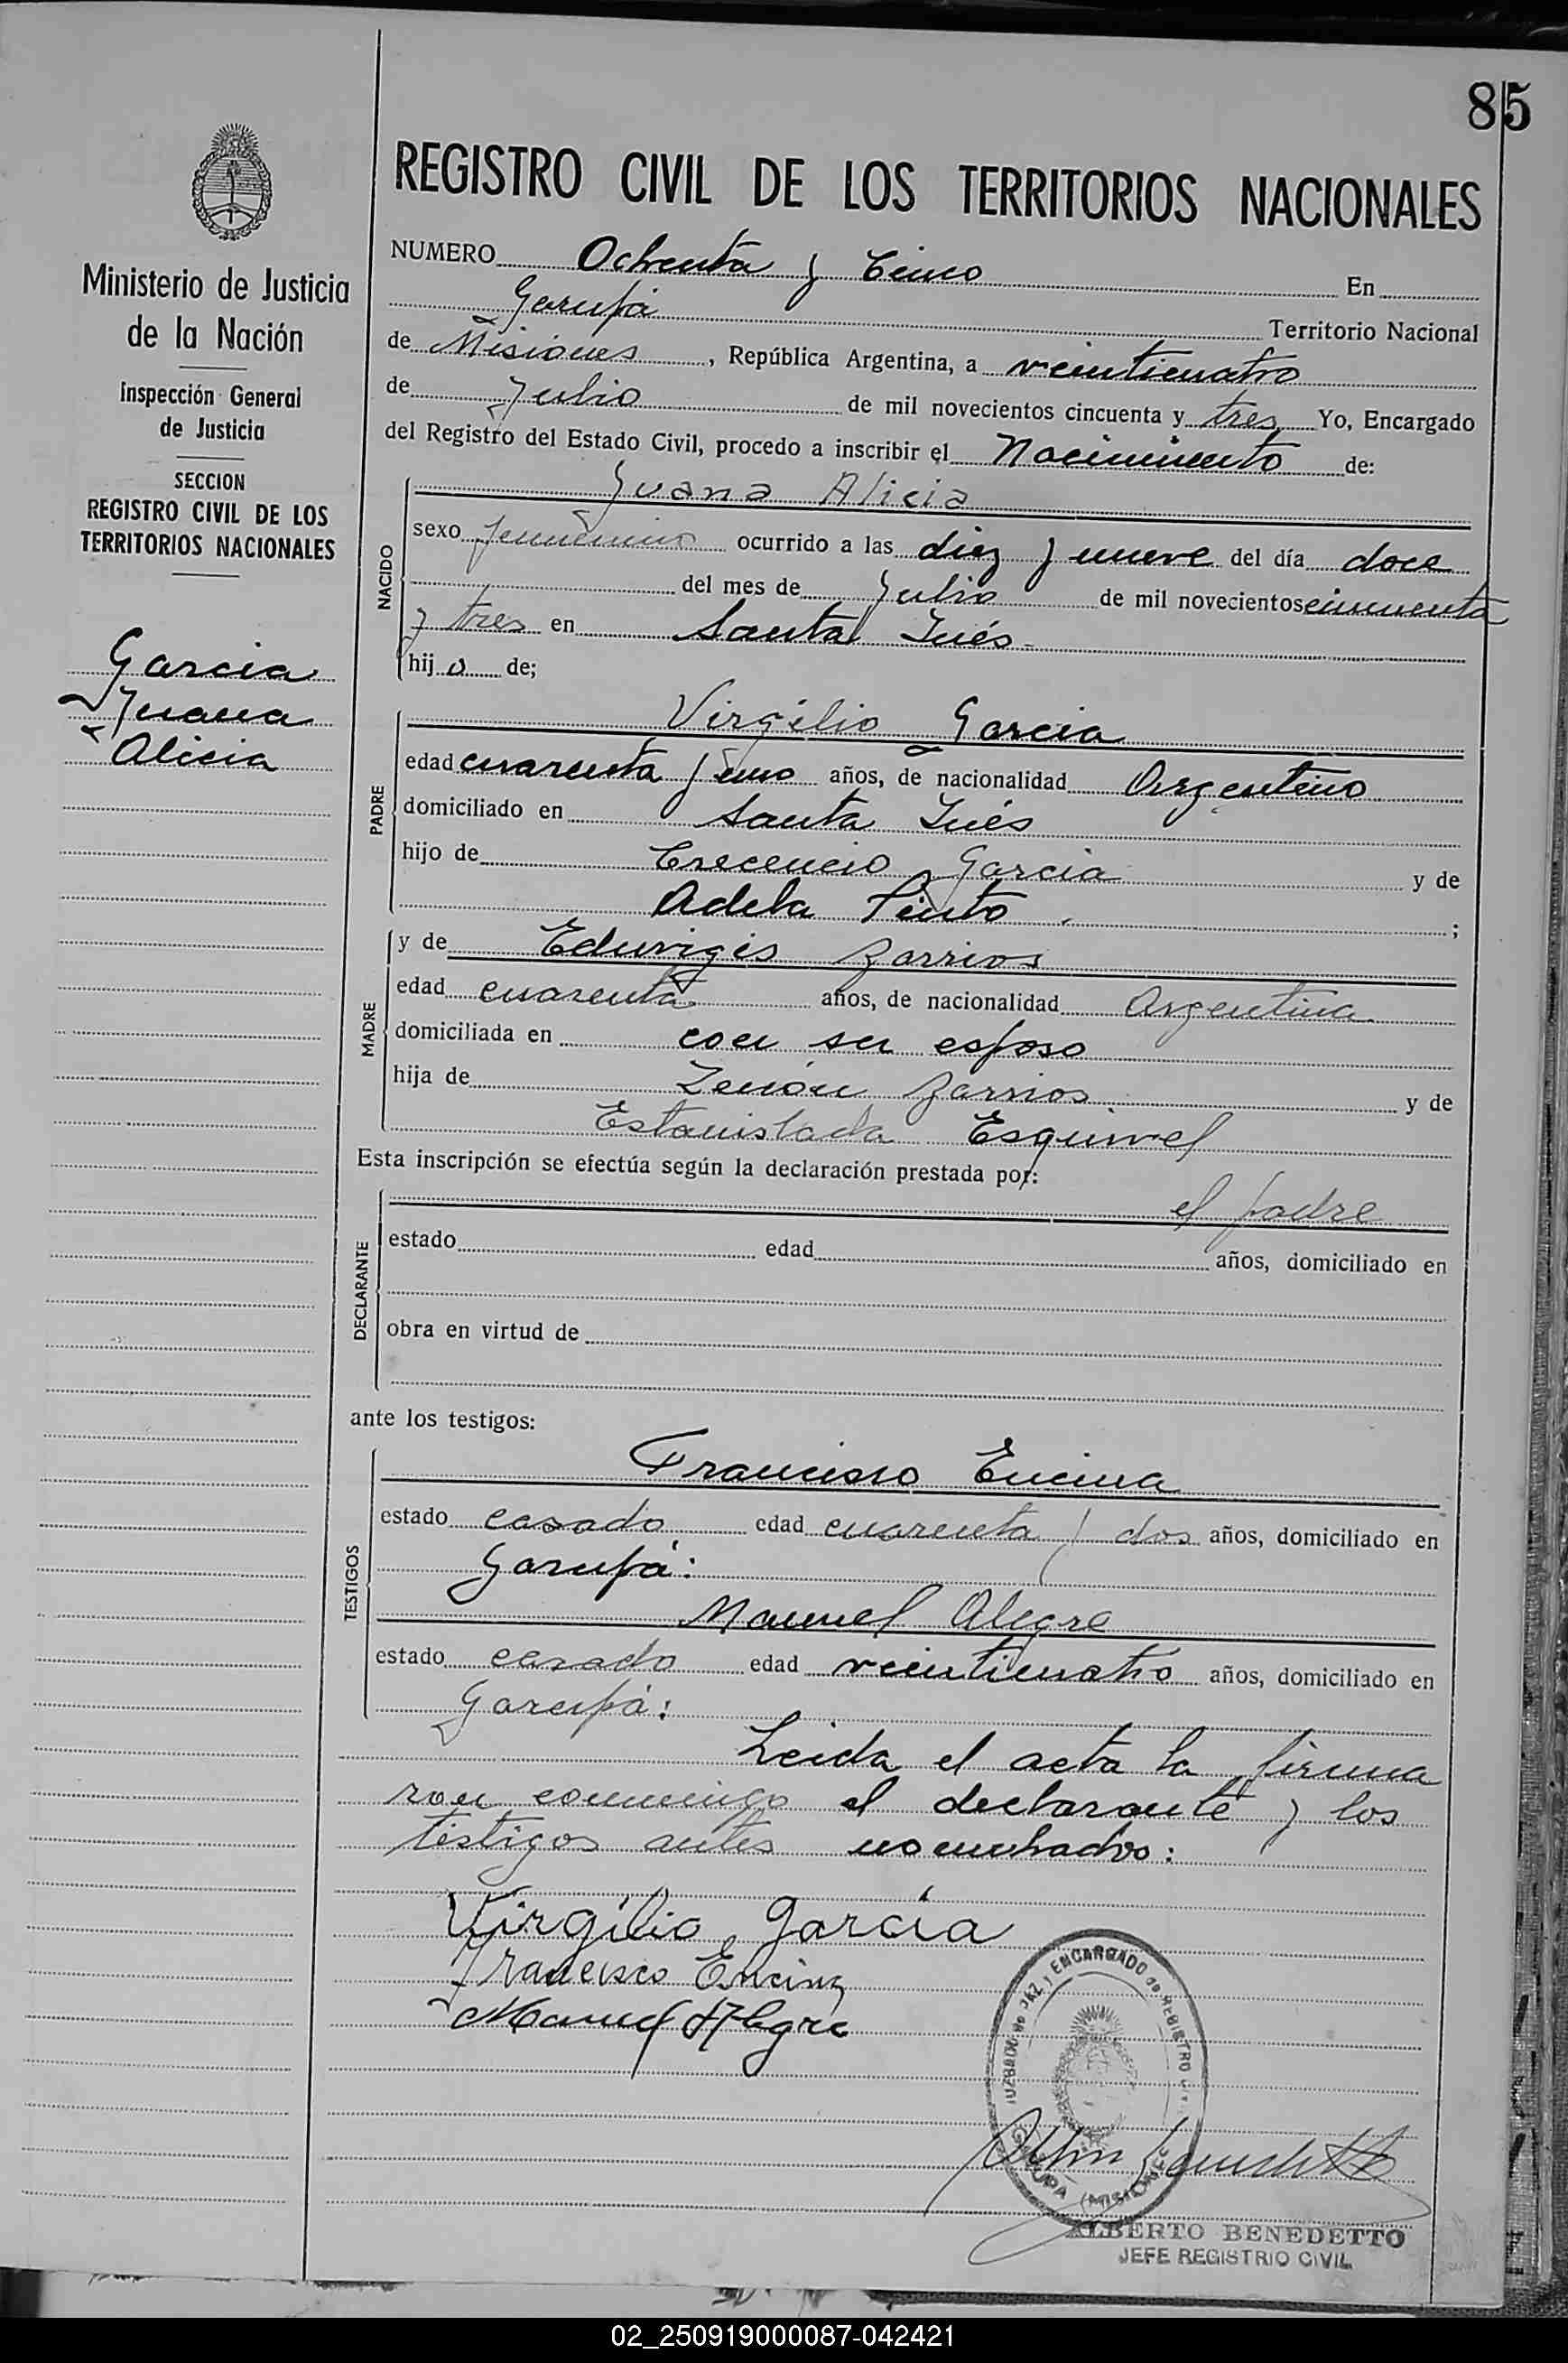 85
REGISTRO CIVIL DE LOS TERRITORIOS NACIONALES
Ministerio de Justicia
de la Nación
Inspección General
de Justicia
SECCION
REGISTRO CIVIL DE LOS
TERRITORIOS NACIONALES
Garcia
Juana
Alicia
NUMERO Ochenta y Cinco En
Garupá Territorio Nacional
de Misiones, República Argentina, a veinticuatro
de Julio de mil novecientos cincuenta y tres Yo, Encargado
del Registro del Estado Civil, procedo a inscribir el Nacimiento de:
NACIDO
Juana Alicia
sexo femenino ocurrido a las diez y nueve del día doce
del mes de Julio de mil novecientos cincuenta
y tres en Santa Inés
hij a de;
PADRE
Virgilio Garcia
edad cuarenta y uno años, de nacionalidad Argentino
domiciliado en Santa Inés
hijo de Crecencio Garcia y de
Adela Pinto ;
MADRE
y de Eduvigis Barrios
edad cuarenta años, de nacionalidad Argentina
domiciliada en con su esposo
hija de Zenón Barrios y de
Estanislada Esquivel
Esta inscripción se efectúa según la declaración prestada por:
DECLARANTE
el padre
estado edad años, domiciliado en
obra en virtud de
ante los testigos:
TESTIGOS
Francisco Encina
estado casado edad cuarenta y dos años, domiciliado en
Garupá:
Manuel Alegre
estado casado edad veinticuatro años, domiciliado en
Garupá:
Leida el acta la firma
ron conmigo el declarante y los
testigos antes nombrados:
Virgilio García
Francisco Encina
Manuel Alegre
JUZGADO de PAZ y ENCARGADO de REGISTRO
GARUPA (MISIONES)
ALBERTO BENEDETTO
JEFE REGISTRIO CIVIL
02_250919000087-042421